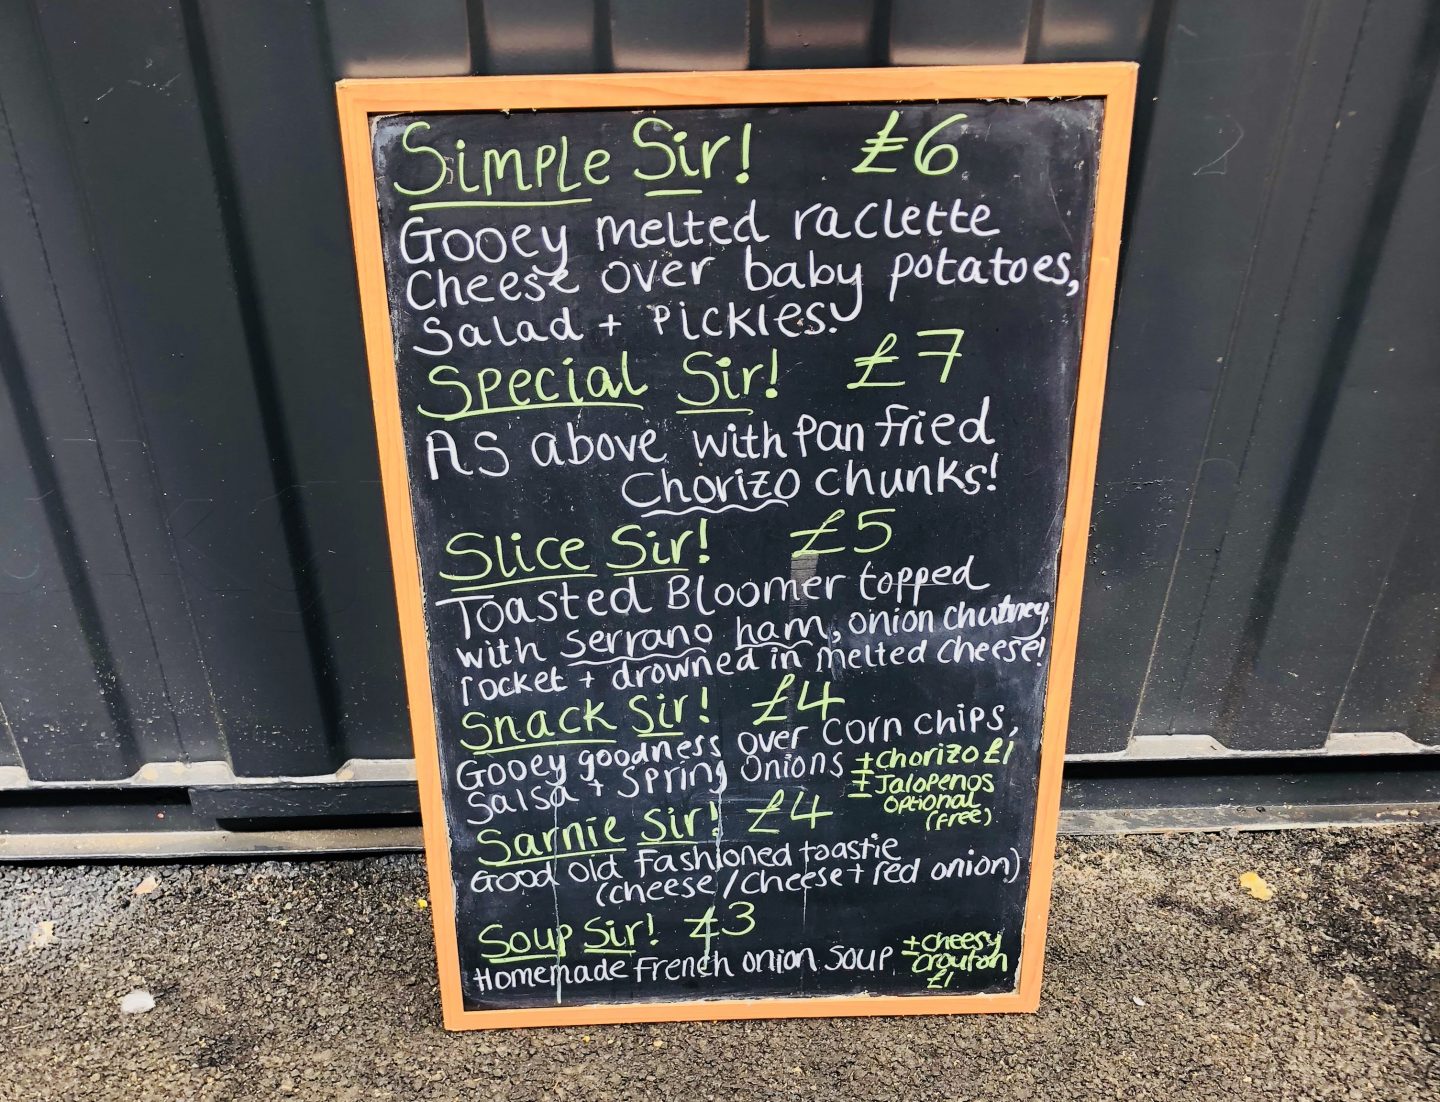 Simple Sir! £6
Gooey melted raclette
Cheese over baby potatoes,
Salad + Pickles!
Special Sir! £7
AS above with Pan fried
Chorizo chunks!
Slice Sir! £5
Toasted Bloomer topped
with Serrano ham, onion chutney,
rocket + drowned in melted cheese!
Snack Sir! £4
Gooey goodness over Corn chips,
Salsa + Spring Onions
+ chorizo £1
± Jalopenos
Optional
(free)
Sarnie Sir! £4
Good old Fashioned toastie
(cheese/Cheese + red onion)
Soup Sir! £3
Homemade French onion soup
+ cheesy
crouton
£1